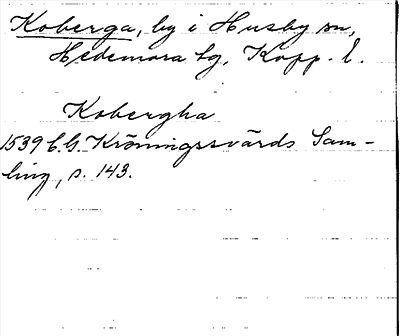 Koberga, by i Husby sn,
Hedemora tg, Kopp. l.
Kobergha
1539 C.G. Kröningssvärds Sam-
ling, s. 143.